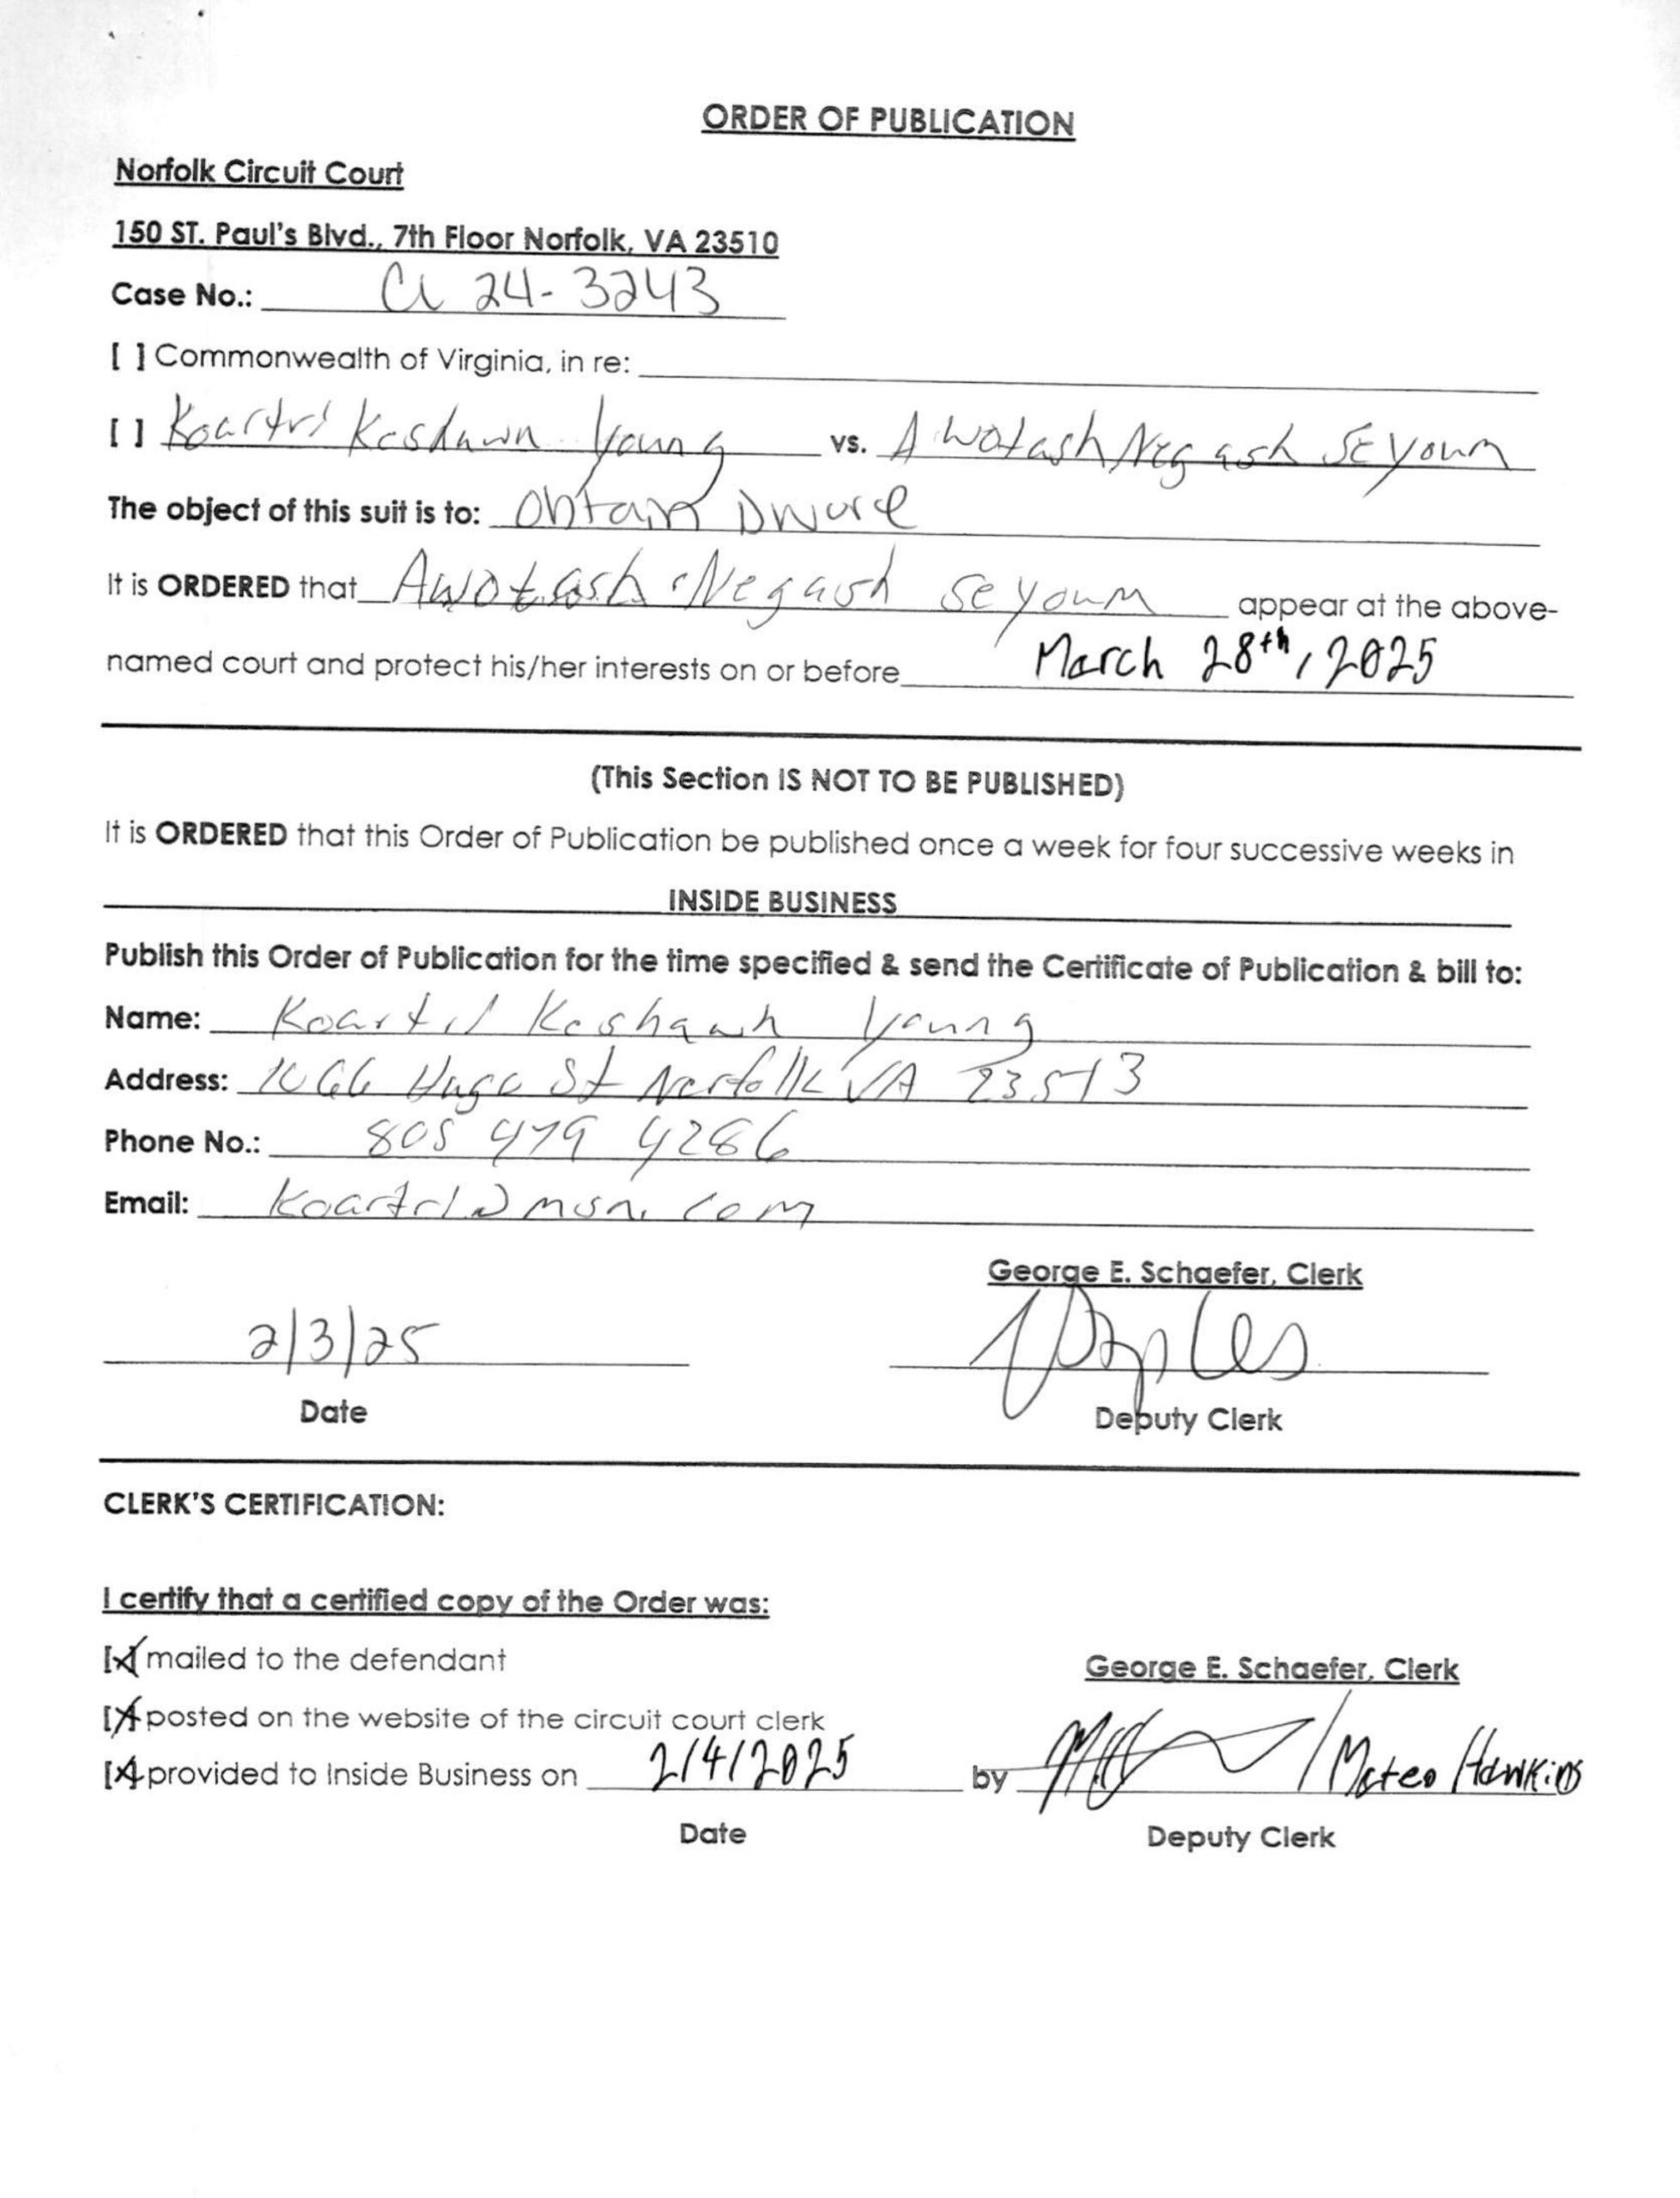 ORDER OF PUBLICATION
Norfolk Circuit Court
150 ST. Paul's Blvd., 7th Floor Norfolk, VA 23510
Case No.: CL 24-3243
[ ] Commonwealth of Virginia, in re:
[ ] Koartri Keshawn Young vs. Awotash Negash Seyoum
The object of this suit is to: Obtain Divorce
It is ORDERED that Awotash Negash Seyoum appear at the above-
named court and protect his/her interests on or before March 28th, 2025
(This Section IS NOT TO BE PUBLISHED)
It is ORDERED that this Order of Publication be published once a week for four successive weeks in
INSIDE BUSINESS
Publish this Order of Publication for the time specified & send the Certificate of Publication & bill to:
Name: Koartri Keshawn Young
Address: St Norfolk VA 23513
Phone No.: 805 479 4286
Email: Koartri@msn.com
George E. Schaefer, Clerk
2/3/25
Date Deputy Clerk
CLERK'S CERTIFICATION:
I certify that a certified copy of the Order was:
[x] mailed to the defendant
George E. Schaefer, Clerk
[x] posted on the website of the circuit court clerk
[x] provided to Inside Business on 2/4/2025 by / Mateo Hawkins
Date Deputy Clerk